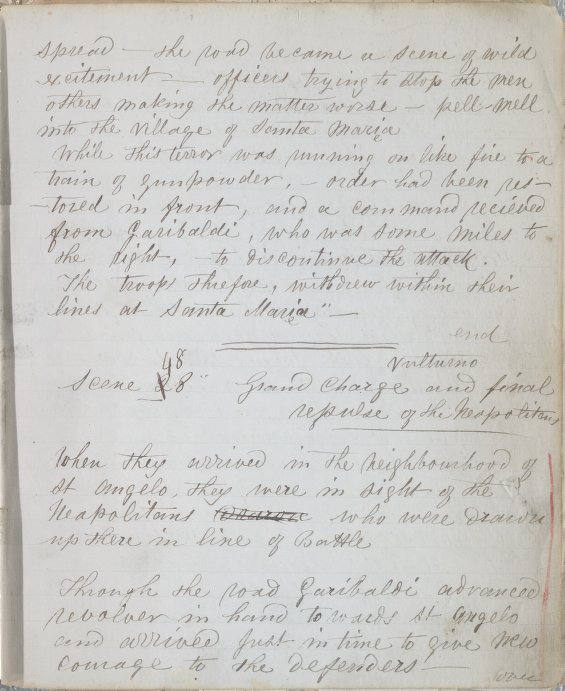 spread — the road became a scene of wild
excitement — officers trying to stop the men
others making the matter worse — pell-mell
into the village of Santa Maria
While this terror was running on like fire to a
train of gunpowder, — order had been res-
-tored in front, and a command recieved
from Garibaldi, who was some miles to
the right, — to discontinue the attack.
The troops threfore, withdrew within their
lines at Santa Maria" —
end
48
Vulturno
Scene 28" Grand Charge and final
repulse of the Neapolitans
When they arrived in the neighbourhood of
St Angelo, they were in sight of the
Neapolitans who were drawn
up there in line of Battle
Through the road Garibaldi advanced
revolver in hand towards St Angelo
and arrived just in time to give new
courage to the defenders —
over